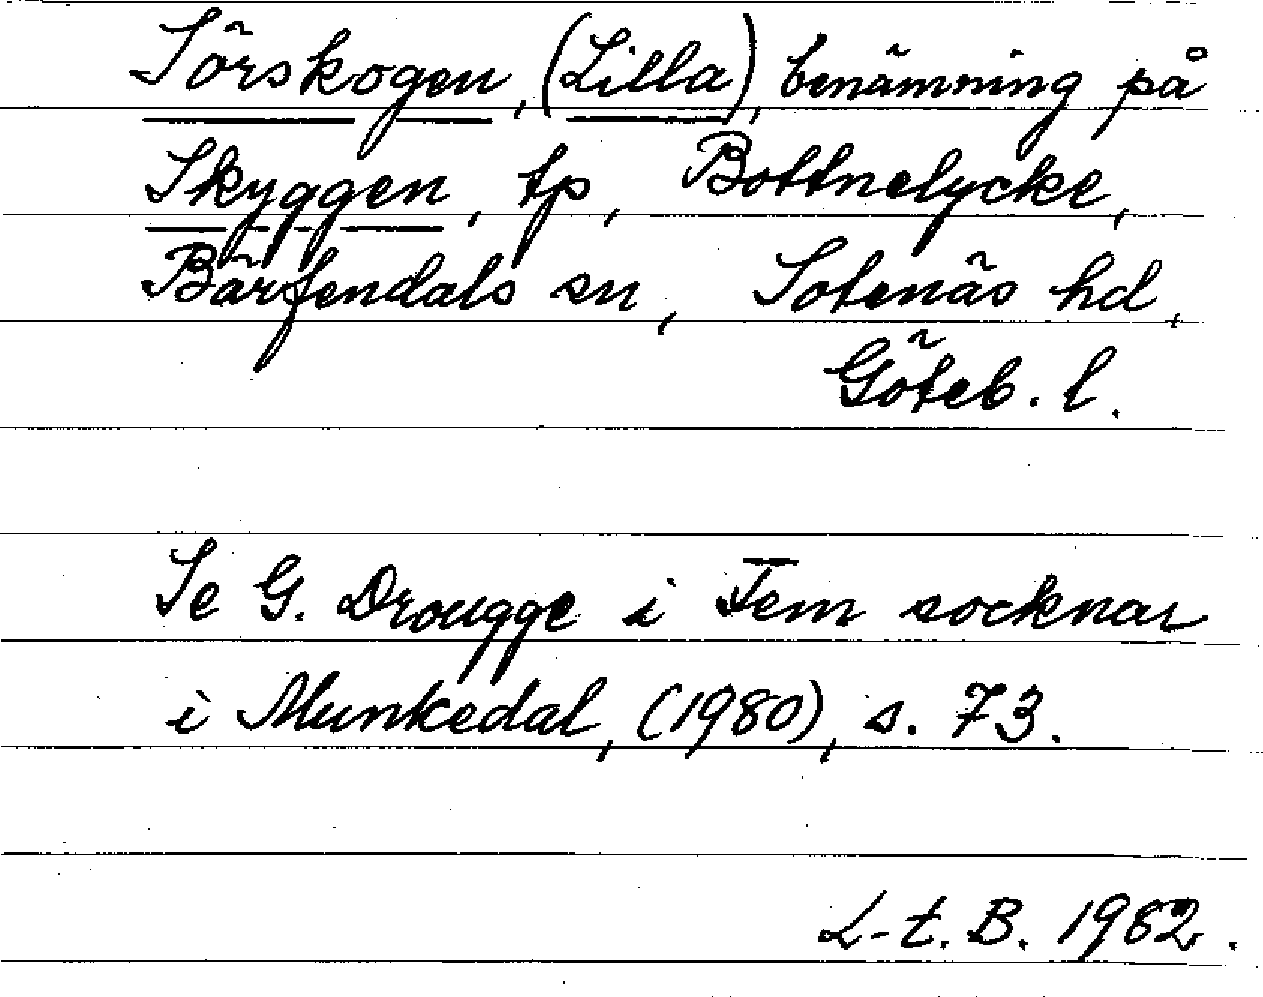 Sörskogen, (Lilla), benämning på
Skyggen, tp, Bottnelycke,
Bärfendals sn, Sotenäs hd,
Göteb. l.
Se G. Drougge i Fem socknar
i Munkedal, (1980), s. 73.
L-t. B. 1982.